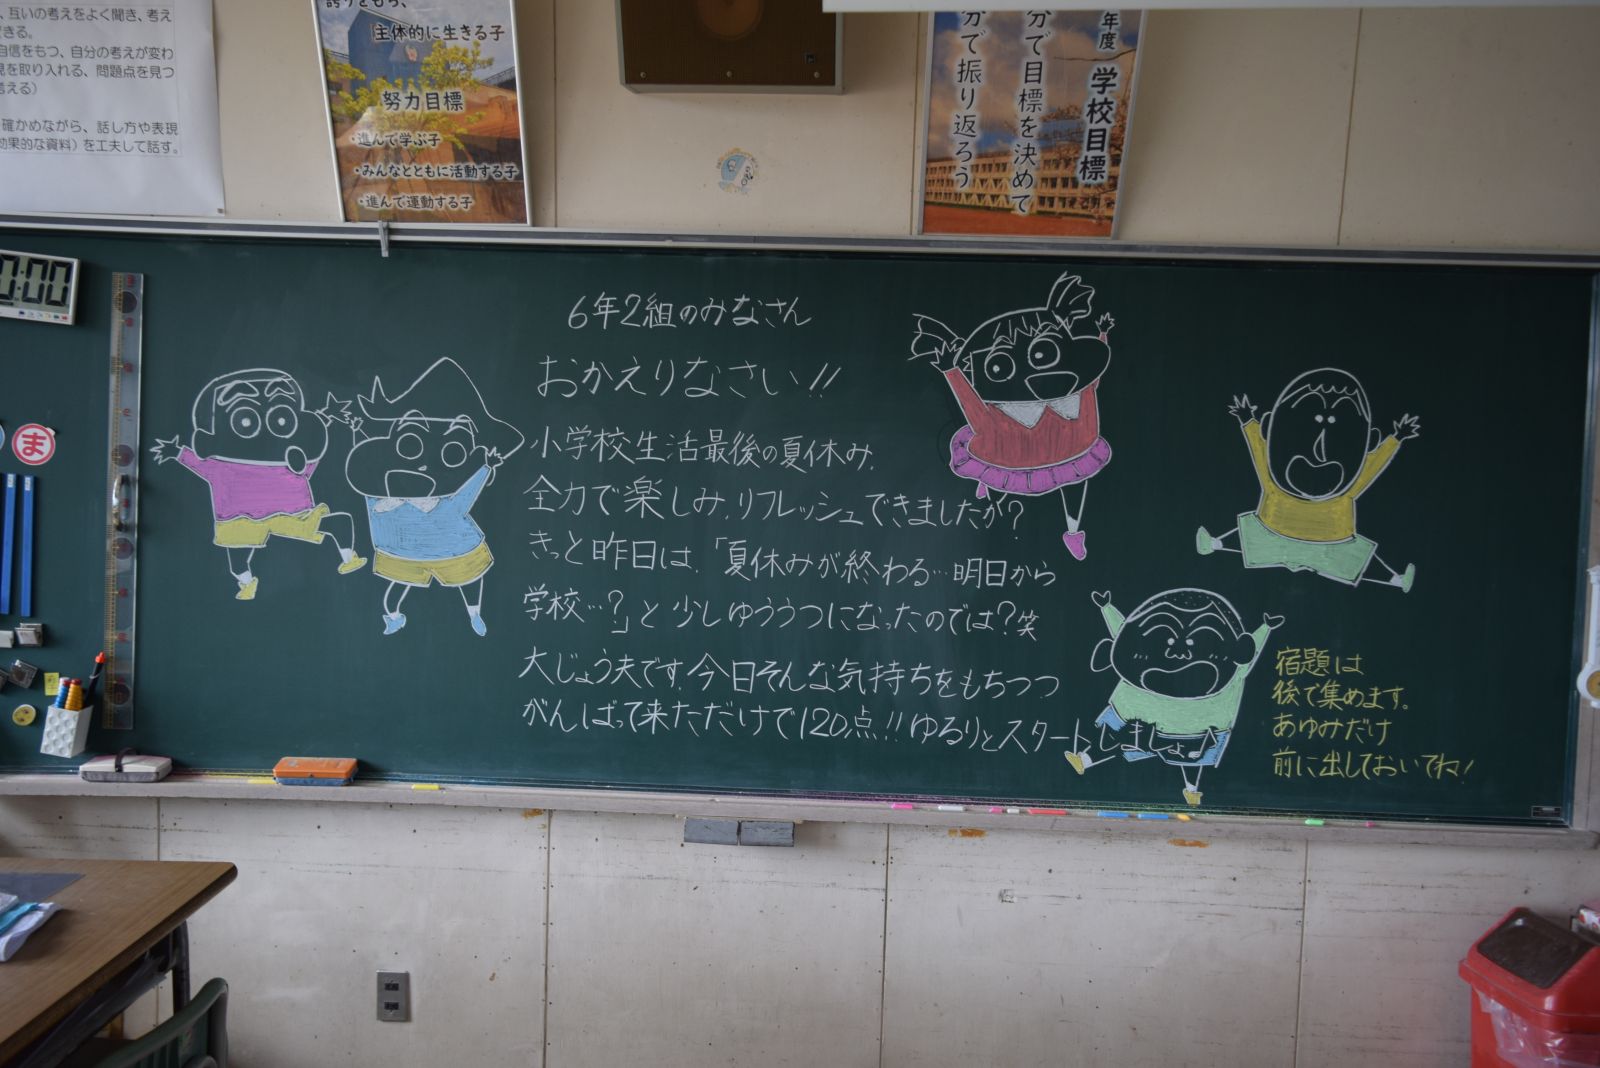 、互いの考えをよく聞き、考え
きる。
自信をもつ、自分の考えが変わ
見を取り入れる、問題点を見つ
考える）
確かめながら、話し方や表現
効果的な資料）を工夫して話す。
誇りをもち、
主体的に生きる子
努力目標
・進んで学ぶ子
・みんなとともに活動する子
・進んで運動する子
年度 学校目標
分で目標を決めて
分で振り返ろう
:00
ま
6年2組のみなさん
おかえりなさい!!
小学校生活最後の夏休み、
全力で楽しみ、リフレッシュできましたか?
きっと昨日は、「夏休みが終わる…明日から
学校…?」と少しゆううつになったのでは?笑
大じょう夫です、今日そんな気持ちをもちつつ
がんばって来ただけで120点!!ゆるりとスタートしましょ♪
宿題は
後で集めます。
あゆみだけ
前に出しておいてね!